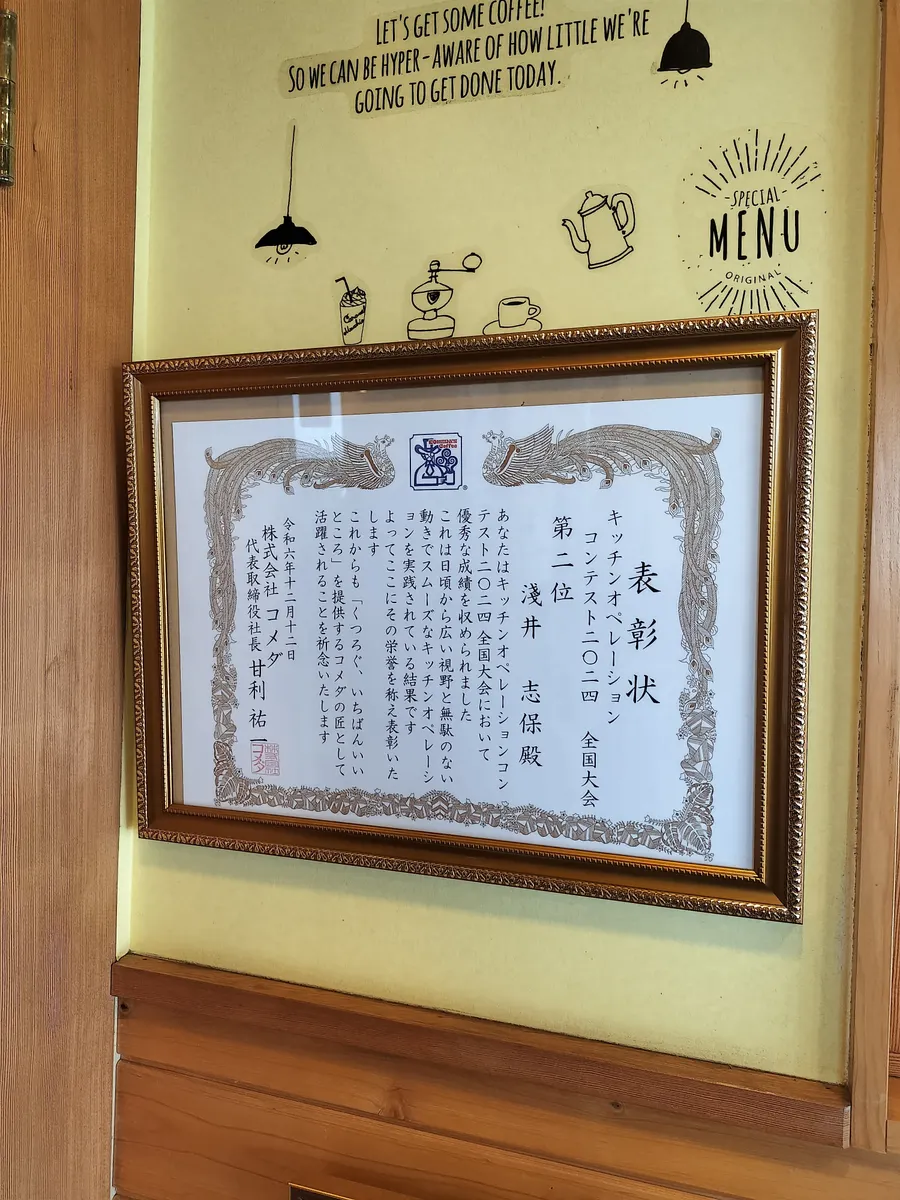 LET'S GET SOME COFFEE!
SO WE CAN BE HYPER-AWARE OF HOW LITTLE WE'RE
GOING TO GET DONE TODAY.
SPECIAL
MENU
ORIGINAL
Coffee
表彰状
キッチンオペレーション
コンテスト二〇二四 全国大会
第二位
淺井 志保殿
あなたはキッチンオペレーションコン
テスト二〇二四 全国大会において
優秀な成績を収められました
これは日頃から広い視野と無駄のない
動きでスムーズなキッチンオペレーシ
ョンを実践されている結果です
よってここにその栄誉を称え表彰いた
します
これからも「くつろぐ、いちばんいい
ところ」を提供するコメダの匠として
活躍されることを祈念いたします
令和六年十二月十二日
株式会社 コメダ
代表取締役社長 甘利 祐一